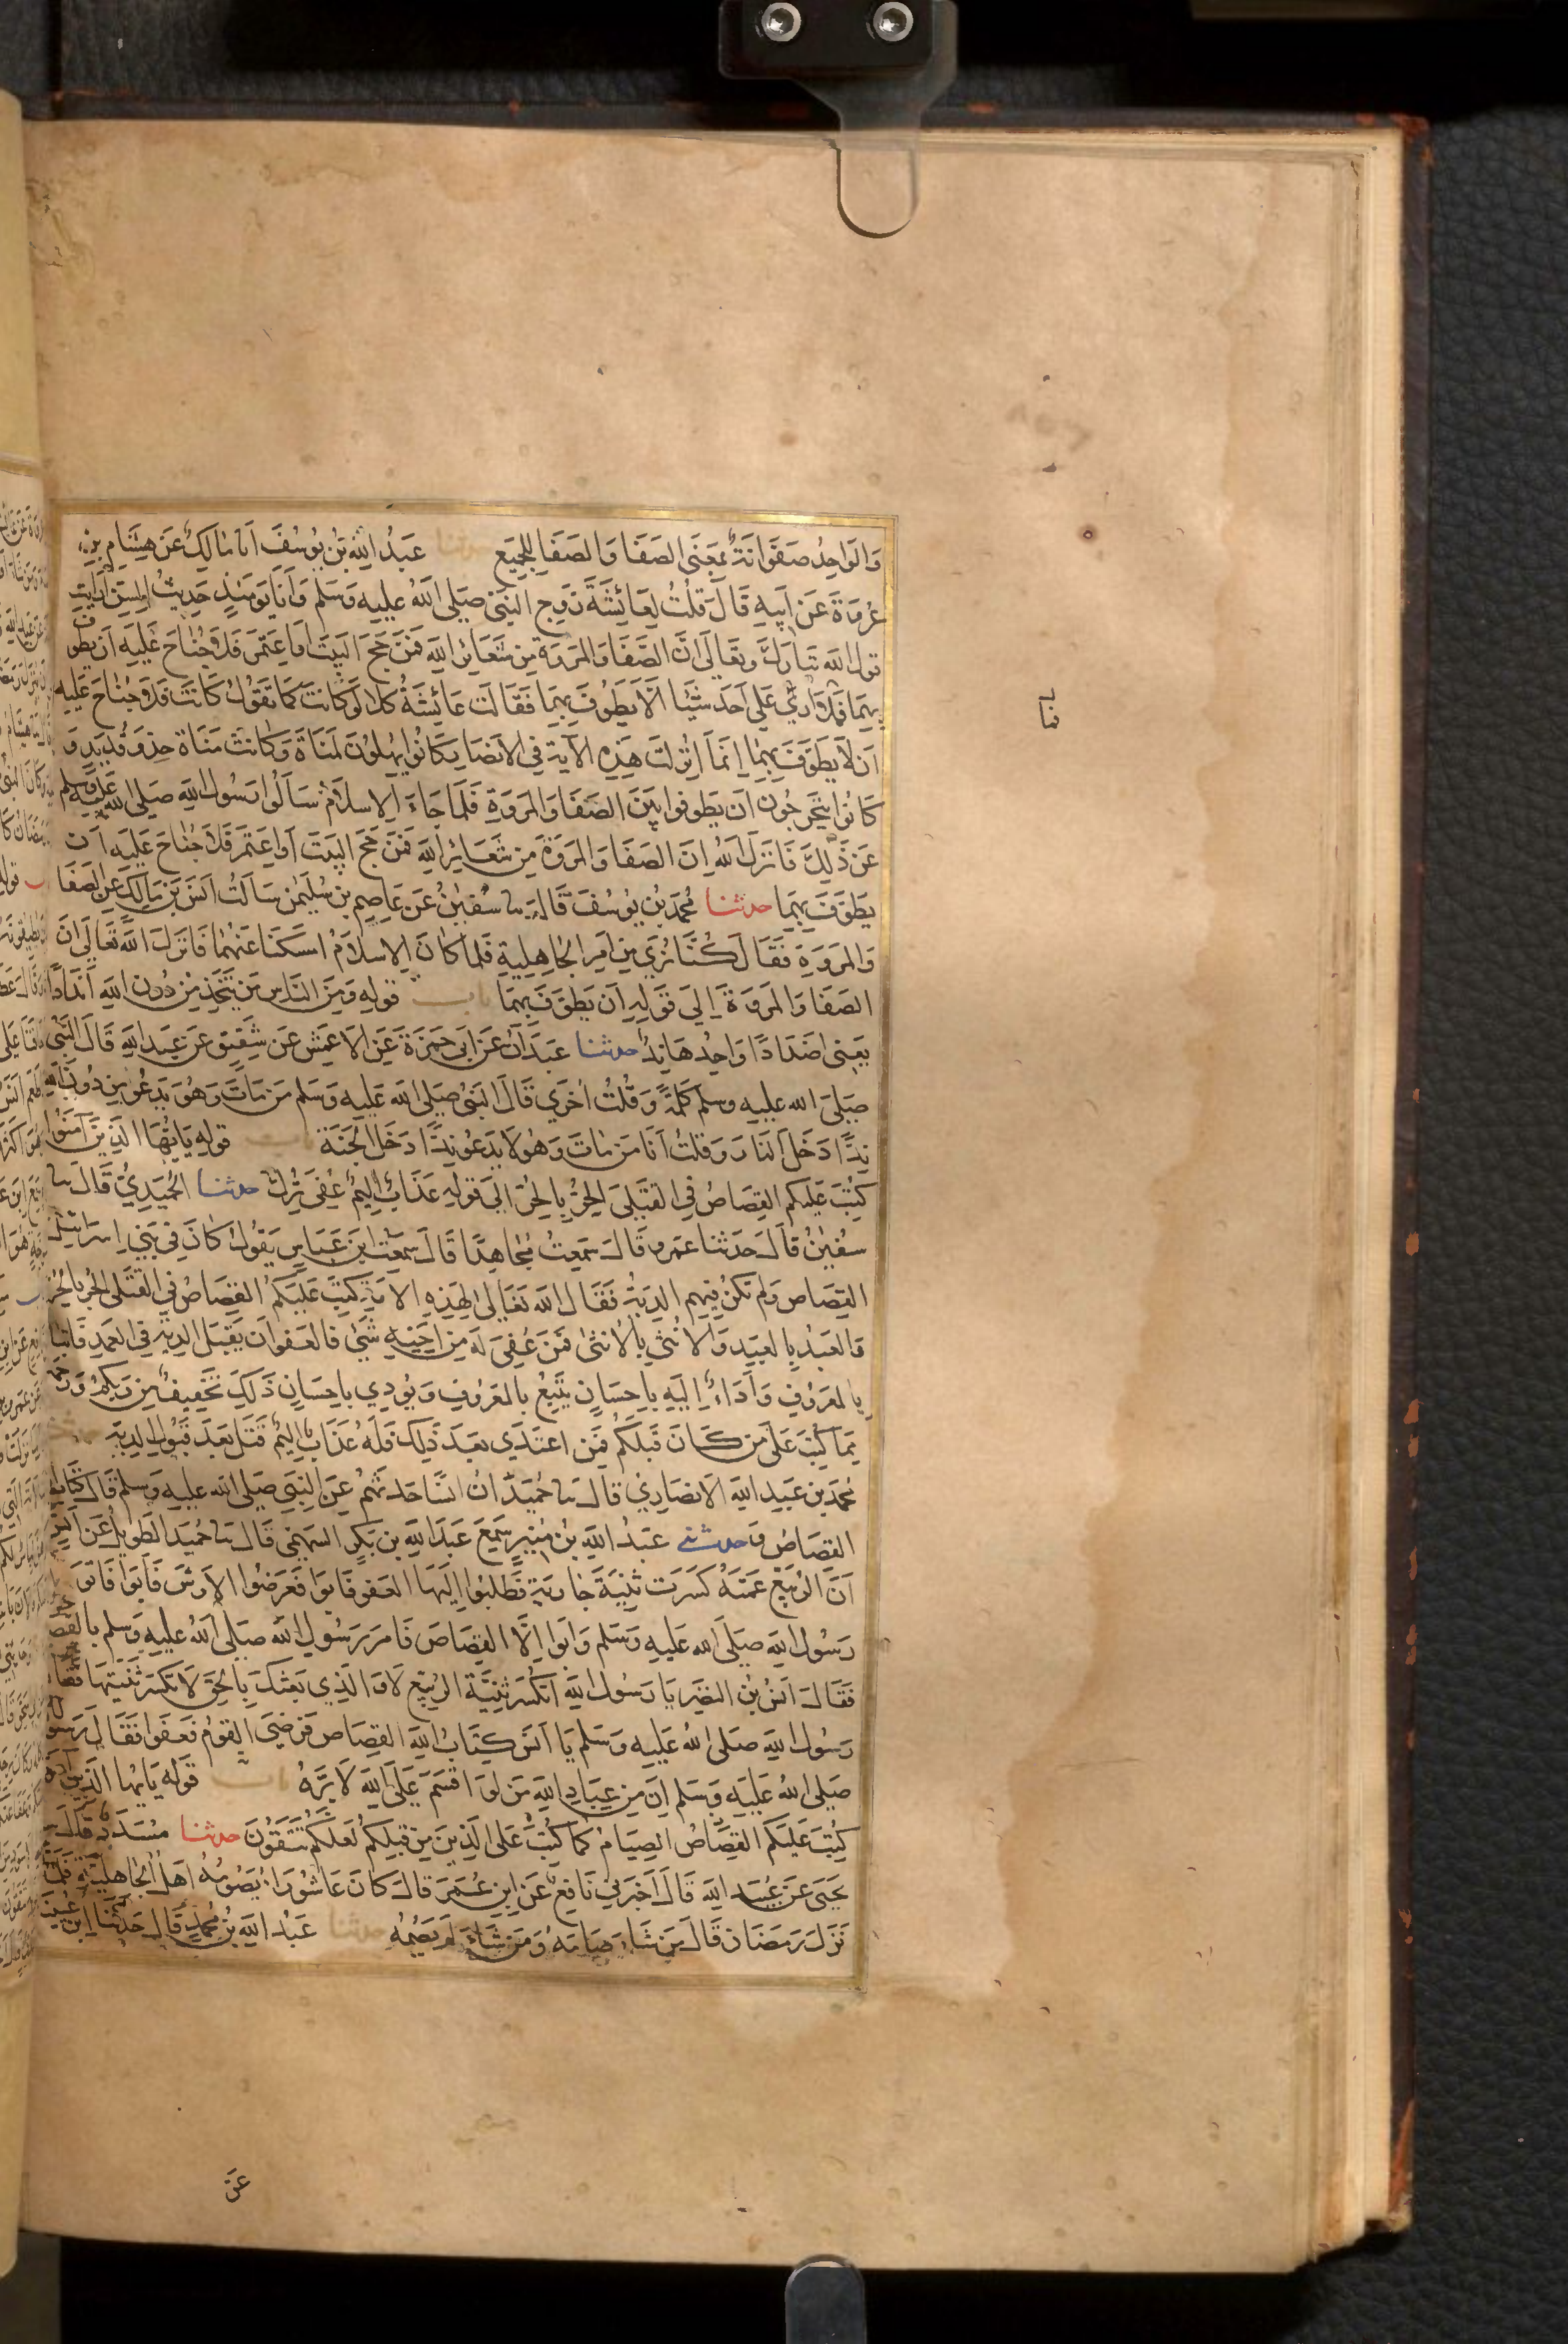 وَالوَاحِدُ صَفوَانَةٌ بمَعنَى الصَفَا وَالصَفَا لِلجَمِيع حدثنا عَبدُ اللهِ بنُ يُوسُفَ انا مَالِكٌ عَن هِشَامِ بنِ
عُروَةَ عَن اَبِيهِ قَالَ قلتُ لِعَائشَةَ زَوجِ النبىّ صَلى اللهُ عليهِ وَسَلم وَاَنَا يَومَئذٍ حَدِيثُ السِنّ اَرَايتِ
قول الله تَبَارَكَ وتعَالَى انَّ الصَّفَا وَالمَروَةَ مِن شَعَائرِ اللهِ فمَن حَجّ البَيتَ اَوِ اعتَمَرَ فلَا جُناحَ عَلَيهِ اَن يَطوف
بِهِمَا فمَا اُرَى عَلى اَحَدٍ شَيئًا اَلَّا يَطَوّفَ بِهِمَا فقَالَت عَائشَةُ كلا لَو كَانَت كمَا تقُولُ كَانَت فلَا جُناحَ عَليهِ
اَن لَا يَطَوّفَ بِهِمَا اِنمَا اُنزِلَت هَذِهِ الآيَة فِي الاَنصَارِ كَانُوا يُهِلّونَ لمَنَاةَ وَكَانَت مَنَاة حذوَ قُدَيدٍ وَ
كَانُوا يَتَحَرجُون اَن يَطوفوا بَينَ الصَفَا وَالمَروَةِ فَلمَا جَاءَ الاِسلَامُ سَاَلُوا رَسُولَ اللهِ صَلى الله عَليهِ وَسَلم
عَن ذَلِكَ فَانزَلَ اللهُ اِنَ الصَفَا وَالمَروَةَ مِن شَعَائِرِ اللهِ فمَن حَجّ البَيتَ اَوِ اعتَمَرَ فَلَا جُنَاحَ عَلَيهِ اَن
يَطَوّفَ بِهِمَا حدثنا مُحمَدُ بنُ يُوسُفَ قَالَ ثنا سُفينُ عَن عَاصِمِ بنِ سُلَيمٰن سَاَلتُ اَنَسَ بنَ مَالِكٍ عَنِ الصَفَا
وَالمَروَةِ فقَالَ كُنَّا نُرَى مِن اَمرِ الجَاهِليةِ فَلمَا كانَ الِاسلَامُ امسَكنَا عَنهُمَا فَانزَلَ اللهُ تَعَالى اَنَّ
الصَفَا وَالمَروَةَ اِلَى قَولِهِ اَن يَطَوّفَ بِهِمَا باب قولهِ وَمِنَ النَاسِ مَن يَتَّخِذ مِن دُونِ اللهِ اَندَادًا
يَعنِى اَضدَادًا وَاحِدُهَا نِدٌّ حدثنا عَبدَانُ عَن اَبى حَمزَةَ عَن الاَعمَشِ عَن شَقِيقٍ عَن عَبدِ اللهِ قَالَ النَّبى
صَلى الله عليه وسلم كَلمَةً وَقُلتُ اُخرَي قَالَ النَبىُ صَلى الله عَليهِ وَسَلم مَن مَاتَ وَهُوَ يَدعُو مِن دُونِ اللهِ
نِدًّا دَخَلَ النارَ وَقلتُ اَنَا مَن مَاتَ وَهُو لَا يَدعُو نِدًّا دَخَلَ الجَنَةَ باب قولهِ يَايّهَا الذِينَ آمَنُوا
كُتِبَ عَليكم القِصَاصُ في القتلَى الحُرُّ بِالحُرّ اِلى قولهِ عَذَابٌ اَلِيمٌ عُفِىَ تُرِكَ حدثنا الحُمَيدِيُّ قَالَ ثنا
سُفيٰنُ قاَلَ حَدثنا عَمرو قَالَ سَمِعتُ مُجَاهِدًا قَالَ سَمِعتُ ابنَ عَبَاسٍ يَقُولُ كَانَ فِى بَنِي اِسرَائيلَ
القِصَاص وَلم تكُن فِيهِم الدِيَةُ فقَالَ الله تعَالى لِهَذِهِ الاُمَةِ كُتِبَ عَليكُمُ القِصَاصُ في القَتلَى الحُرّ بالحُرّ
وَالعَبدُ بِالعَبدِ وَالاُنثَى بِالاُنثَى فمَن عُفِىَ لَهُ مِن اَخِيهِ شَىٌ فَالعَفوُ اَن يَقبَلَ الدِيَةَ فِى العَمدِ فَاتباعٌ
بِالمَعرُوفِ وَاَدَاءٌ اِلَيهِ بِاِحسَانٍ يَتبِعُ بِالمَعرُوفِ وَيُودِي باِحسَانٍ ذَلِكَ تَخفِيفٌ مِن رَبكمُ وَرَحمَة
مِمَا كُتِبَ عَلَى مَن كَانَ قَبلَكم فَمَنِ اعتَدَى بَعدَ ذَلِكَ فَلَهُ عَذَابٌ اَلِيمٌ قَتَلَ بَعدَ قَبُولِ الدِيَةِ حدثنا
مُحمَدُ بن عَبدِ اللهِ الاَنصَارِيّ قَالَ ثنا حُمَيدٌ ان انسًا حَدثهُم عَنِ النِبىِ صَلى الله عليهِ وَسلم قَالَ كِتَابُ اللهِ
القِصَاصُ و حدثنى عَبدُ اللهِ بنُ مُنِيرٍ سَمِعَ عَبدَ اللهِ بنَ بَكرٍ السَهمِىّ قَالَ ثنا حُمَيدٌ الطَوِيلُ عَن اَنَسٍ
اَنَّ الرُبَيّعَ عَمَتَهُ كَسَرَت ثَنِيَّةَ جَارِيَةٍ فطَلبُوا اِلَيهَا العَفوَ فَابَوا فَعَرَضُوا الاَرشَ فَابَوا فَاتَوا
رَسُولَ اللهِ صَلَى الله عَليهِ وَسَلم وَاَبَوا اِلَّا القِصَاصَ فَامَرَ رَسُولُ اللهِ صَلى اللهُ عليهِ وَسلم بالقصاص
فقَالَ اَنَسُ بنُ النضرِ يَا رَسُولَ اللهِ اَتُكسَرُ ثنِيَّةُ الرُبَيّعِ لَا وَالَّذِي بَعَثكَ بِالحَقّ لَا تُكسَرُ ثَنِيَتُهَا فَقَالَ
رَسُولُ اللهِ صَلى اللهُ عَليهِ وَسَلم يَا اَنَسُ كِتَابُ اللهِ القِصَاصُ فرَضِيَ القَومُ فعَفَوا فقَالَ رَسولُ اللهِ
صَلى اللهُ عَليَهِ وَسَلم اِنَ مِن عِبَادِ اللهِ مَن لَو اَقسَمَ عَلَى اللهِ لَابَرَّهُ باب قوله يَايُها الَّذِينَ آمَنُوا
كُتِبَ عَلَيكم القِصَاصُ الصِيَامُ كمَا كُتِبَ عَلى الَذِينَ مِن قبلِكُم لَعَلكم تَتَّقُونَ حدثنا مُسَدَّدٌ قَالَ ثنا
يَحيَى عَن عُبَيدِ اللهِ قَالَ اَخبَرَنِي نَافِعٌ عَنِ ابنِ عُمَرَ قَالَ كَانَ عَاشُورَا يَصُومُهُ اَهلُ الجَاهِلِيَةِ فَلمَّا
نَزَلَ رَمَضَان قَالَ مَن شَاءَ صَامَهُ وَمَن شَاءَ لَم يَصُمهُ حدثنا عَبدُ اللهِ بنُ مُحمدٍ قَالَ حَدثنا ابن عُيَينة
عَن